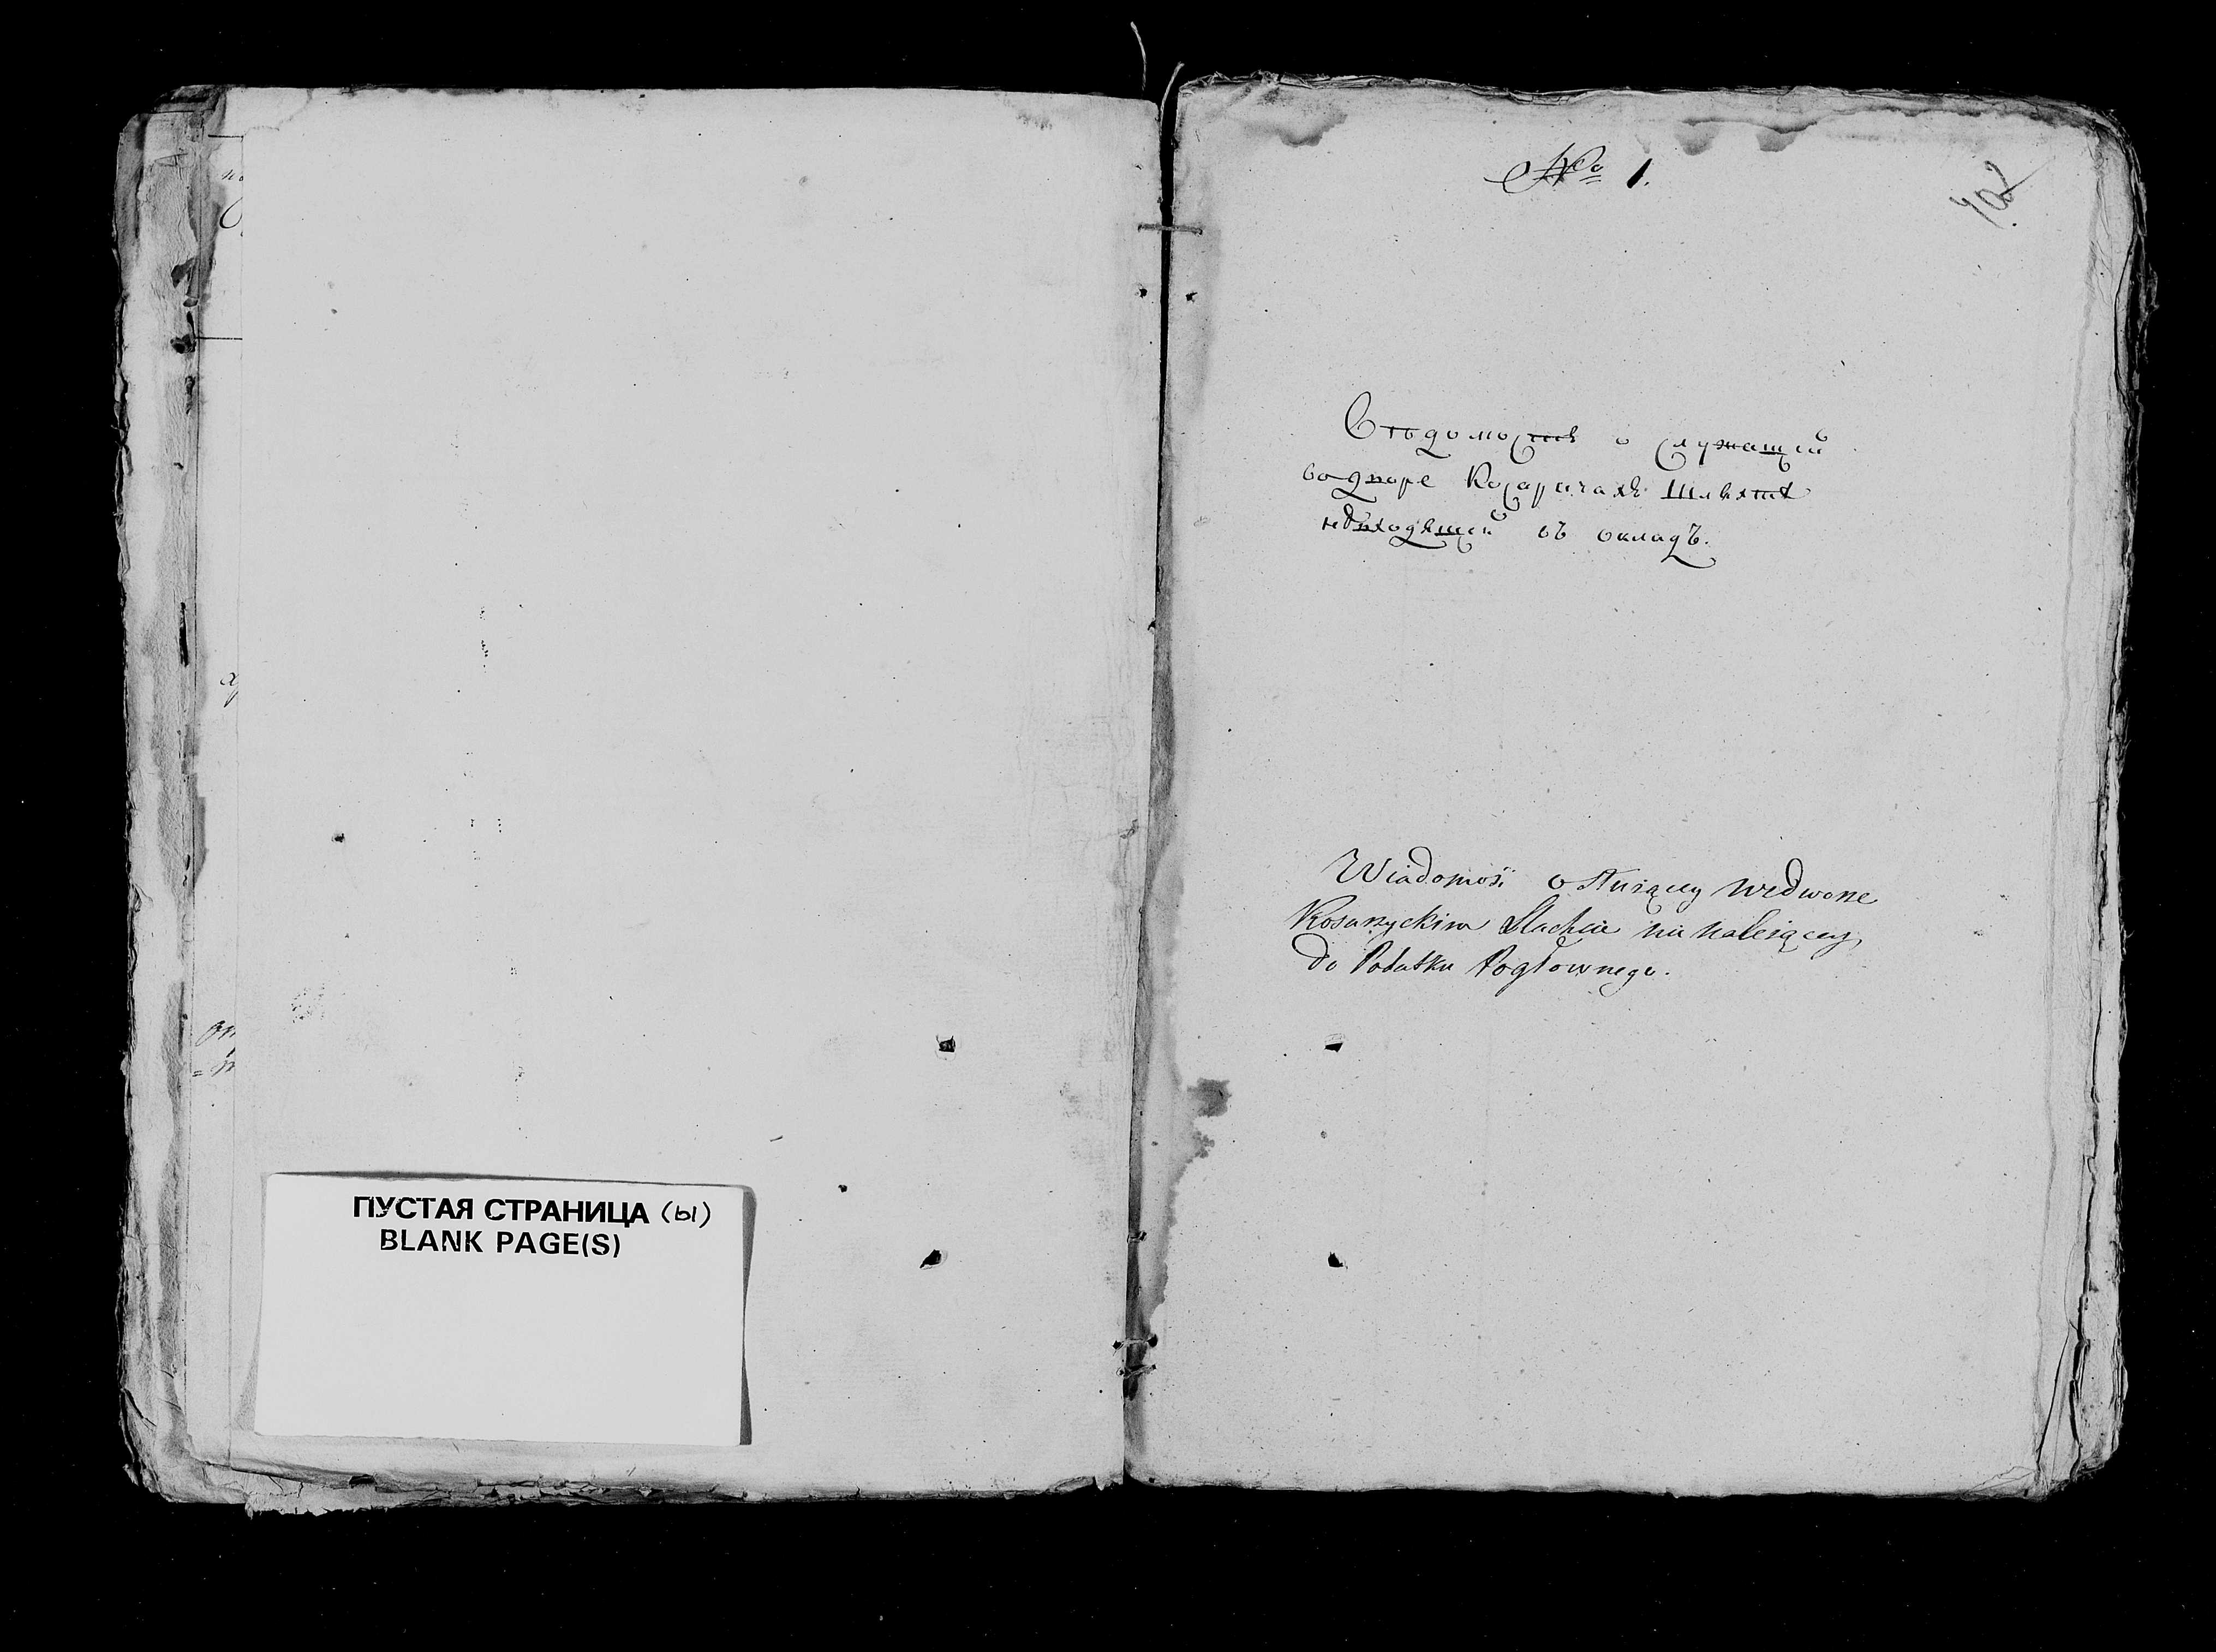 ПУСТАЯ СТРАНИЦА (ы)
BLANK PAGE(S)
№ 1.
402
Вѣдомость о служащей
во дворе Косаричахъ Шляхте
невходящей въ окладъ.
Wiadomość o służącey we dworze
Kosaryckim Slachcie nie należącey
do Podatku Pogłownego.